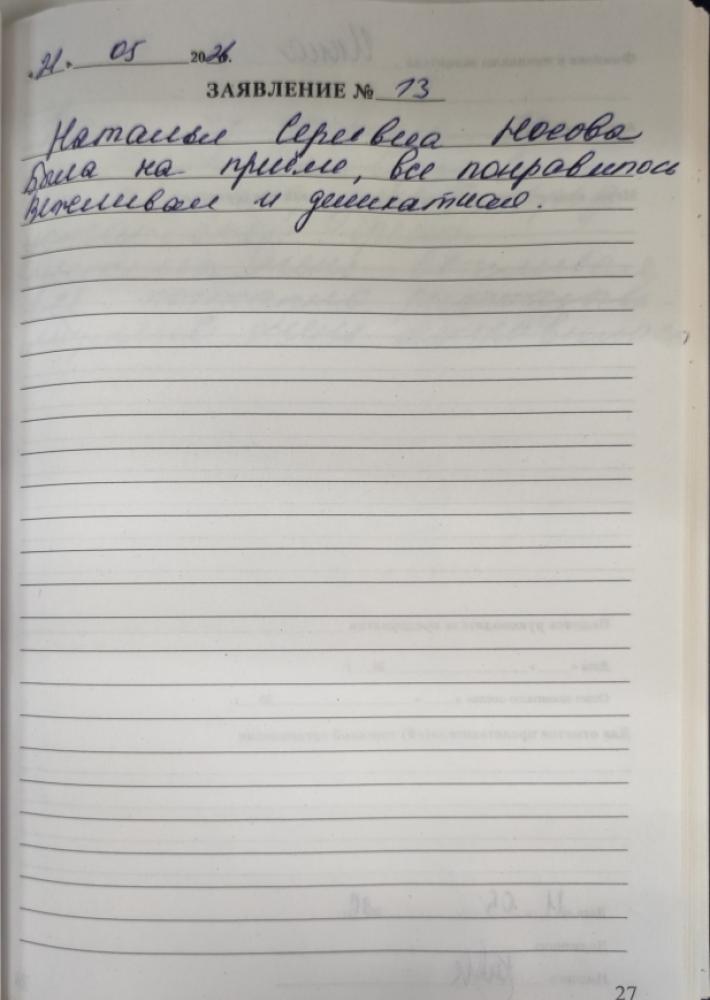 «21» 05 2026.
ЗАЯВЛЕНИЕ № 13
Наталья Сергеевна Носова
Была на приёме, все понравилось
Вежливая и деликатная.
27